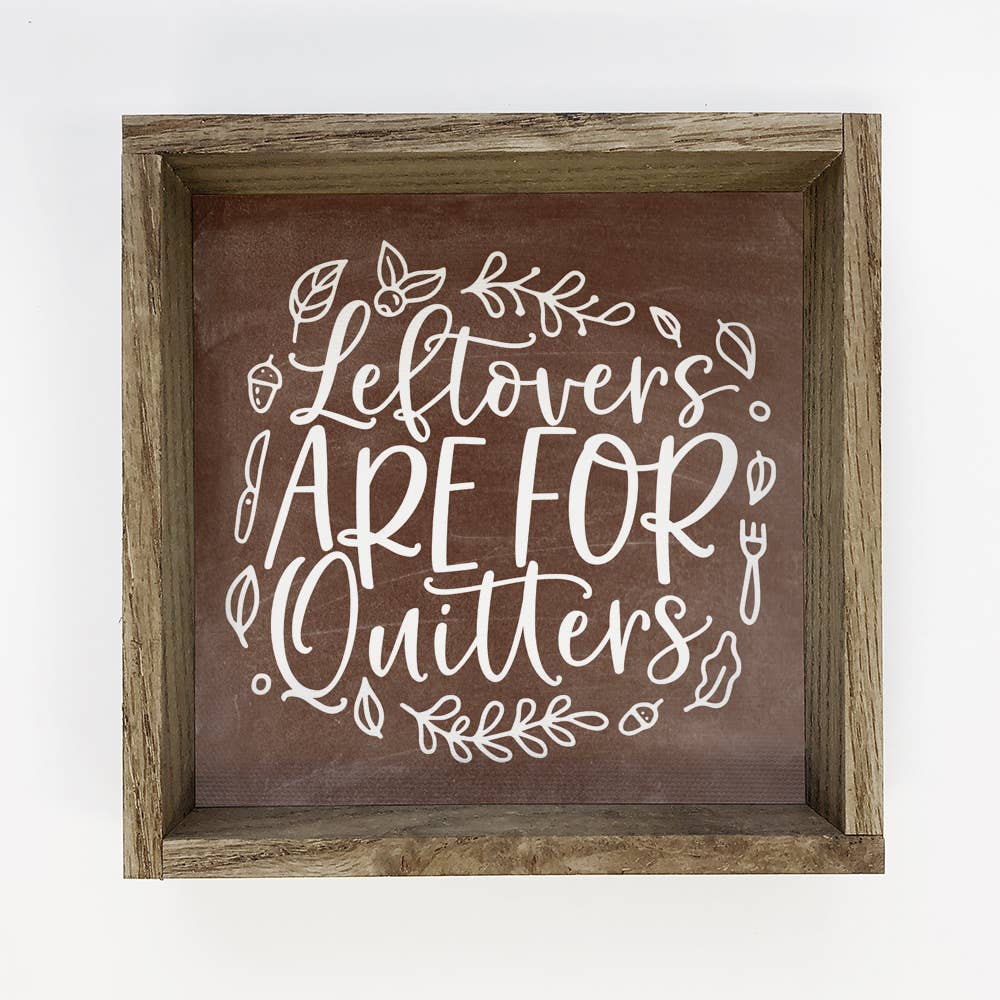 Leftovers
ARE FOR
Quitters